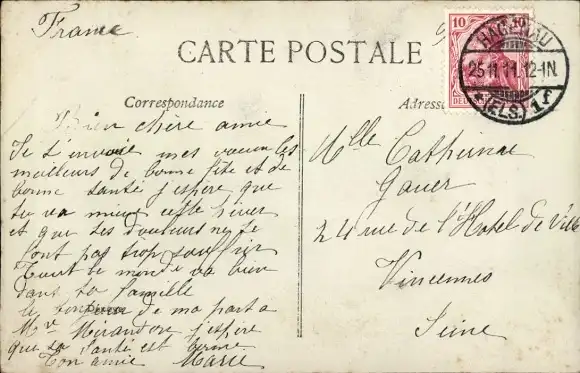 France
CARTE POSTALE
10 10
DEU
HAGENAU
25.11.11.12-1N.
* (ELS.) 1 f
Correspondance
Adresse
Bien chère amie
Je t'envoie mes voeux les
meilleurs de bonne fête et de
bonne santé j'espère que
tu va mieux cette hiver
et que tes douleurs ne te
font pas trop souffrir
Tout le monde va bien
dans ta famille
le bonjour de ma part a
Me Mirandon j'espère
que sa santé est bonne
Ton amie Marie
Mlle Catherine
Gauer
24 rue de l'Hotel de Ville
Vincennes
Seine